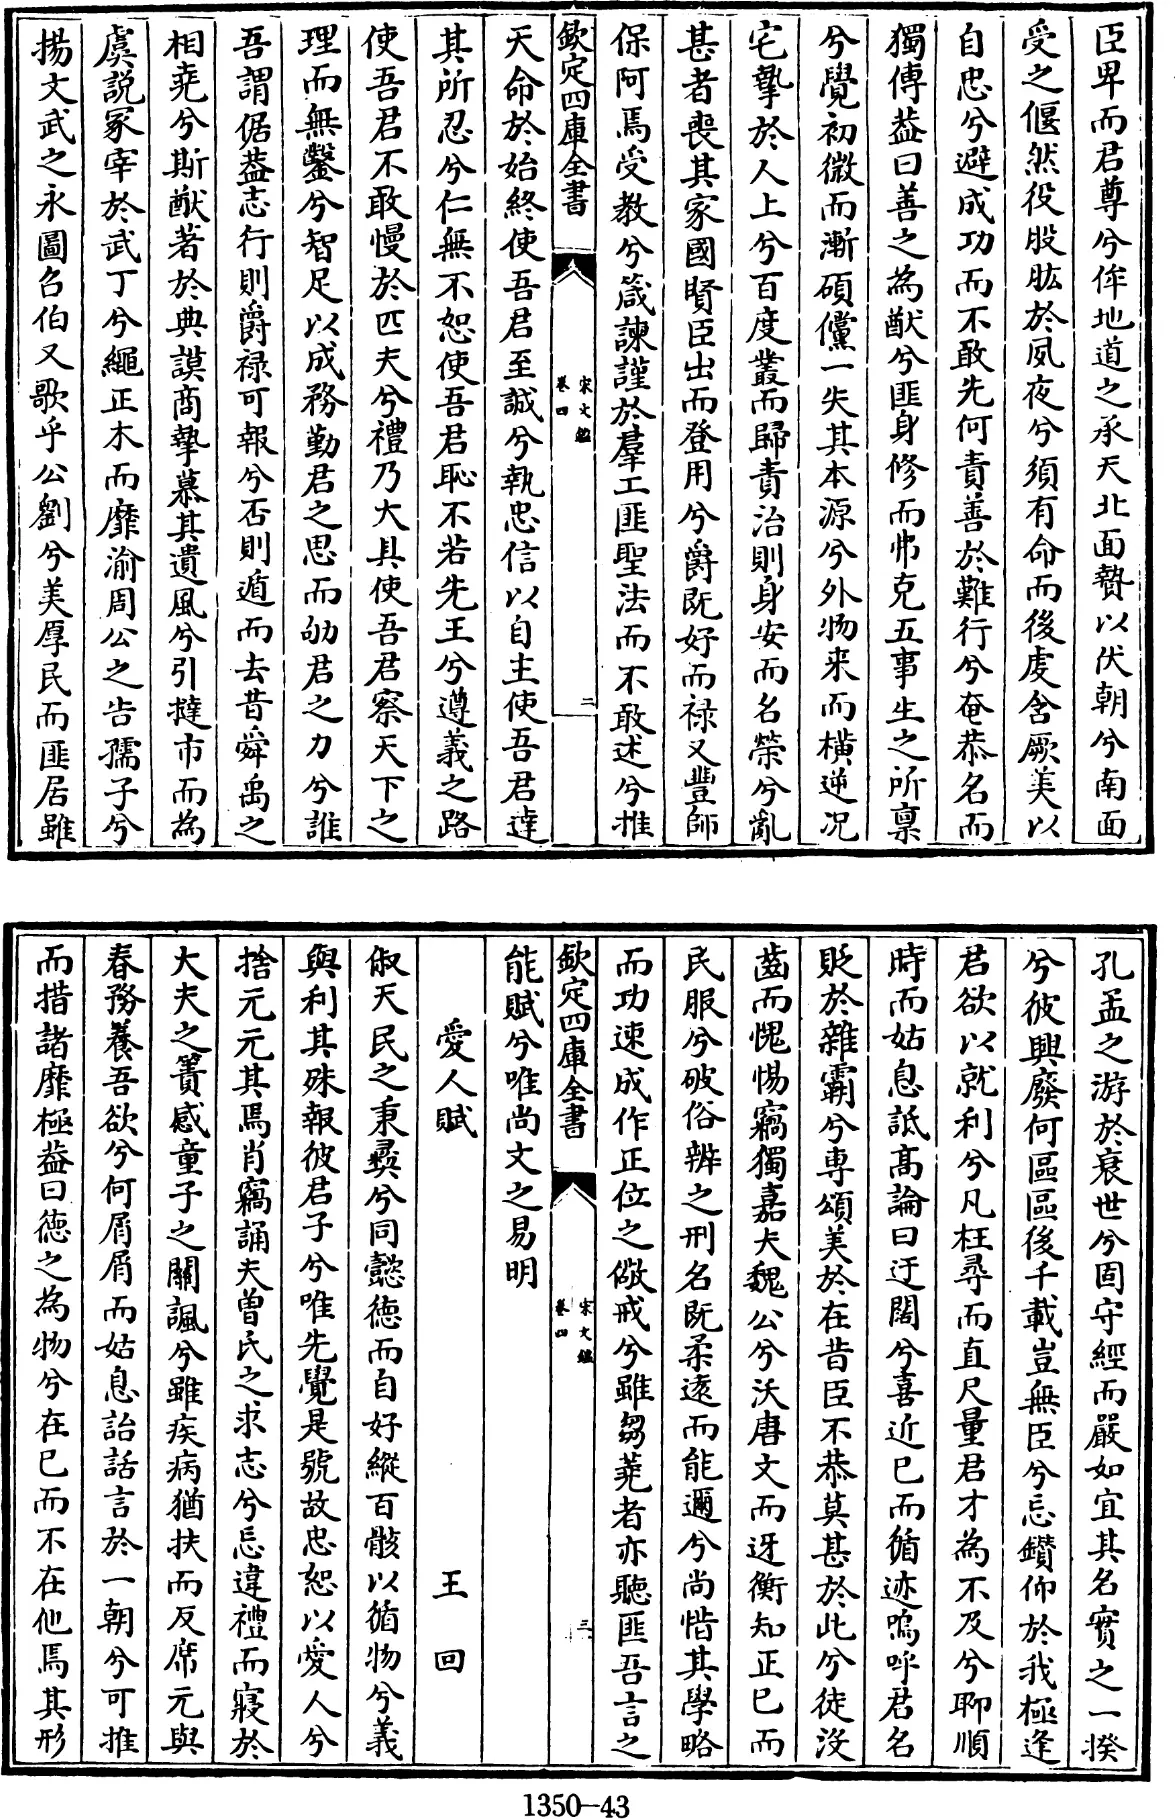 臣卑而君尊兮侔地道之承天北面贄以伏朝兮南面
受之偃然役股肱於夙夜兮須有命而後虔含厥美以
自忠兮避成功而不敢先何責善於難行兮奄恭名而
獨傳葢曰善之為猷兮匪身修而弗克五事生之所禀
兮覺初微而漸碩儻一失其本源兮外物来而橫逆况
宅摯於人上兮百度叢而歸責治則身安而名榮兮亂
甚者喪其家國賢臣出而登用兮爵既好而禄又豐師
保阿焉受教兮箴諫謹於羣工匪聖法而不敢述兮推
欽定四庫全書
宋文鑑
卷四
二
天命於始終使吾君至誠兮執忠信以自主使吾君達
其所忍兮仁無不恕使吾君恥不若先王兮遵義之路
使吾君不敢慢於匹夫兮禮乃大具使吾君察天下之
理而無鑿兮智足以成務勤君之思而劬君之力兮誰
吾謂倨葢志行則爵禄可報兮否則遁而去昔舜禹之
相堯兮斯猷著於典謨商摯慕其遺風兮引撻市而為
虞説冢宰於武丁兮繩正木而靡渝周公之告孺子兮
揚文武之永圖召伯又歌乎公劉兮美厚民而匪居雖
孔孟之游於衰世兮固守經而嚴如宜其名實之一揆
兮彼興廢何區區後千載豈無臣兮忘鑽仰於我極逢
君欲以就利兮凡枉尋而直尺量君才為不及兮聊順
時而姑息詆髙論曰迂闊兮喜近已而循迹嗚呼君名
貶於雜霸兮専頌美於在昔臣不恭莫甚於此兮徒没
齒而愧惕竊獨嘉夫魏公兮沃唐文而迓衡知正已而
民服兮破俗辨之刑名既柔遠而能邇兮尚惜其學略
而功速成作正位之儆戒兮雖芻蕘者亦聽匪吾言之
欽定四庫全書
宋文鑑
卷四
三
能賦兮唯尚文之易明
愛人賦
王回
俶天民之秉彛兮同懿徳而自好縱百骸以循物兮義
與利其殊報彼君子兮唯先覺是號故忠恕以愛人兮
捨元元其焉肖竊誦夫曾氏之求志兮忌違禮而寢於
大夫之簀感童子之關諷兮雖疾病猶扶而反席元與
春務養吾欲兮何屑屑而姑息詒話言於一朝兮可推
而措諸靡極葢曰徳之為物兮在已而不在他焉其形
1350—43